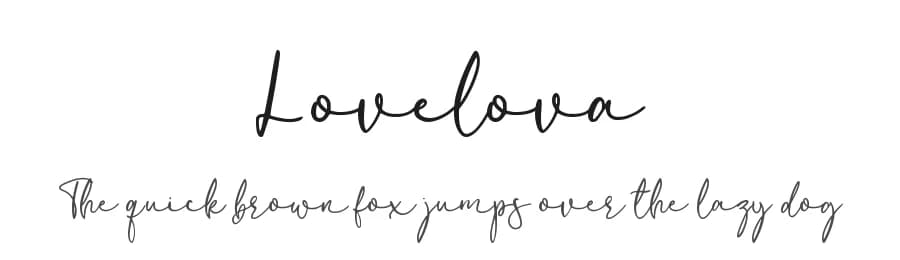 Lovelova
The quick brown fox jumps over the lazy dog